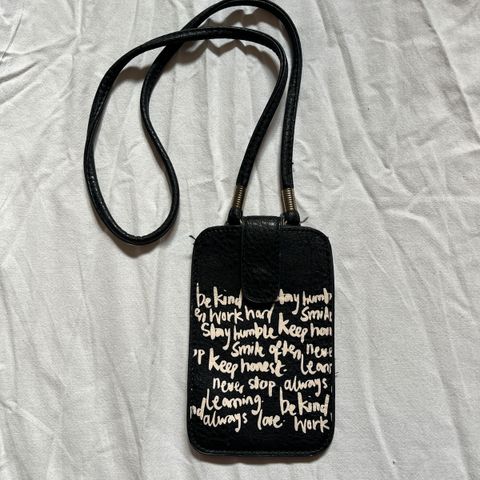 be kind stay humb
en work hard smile
stay humble keep hon
smile often neve
p keep honest learn
never stop always
learning be kind
nd always love work